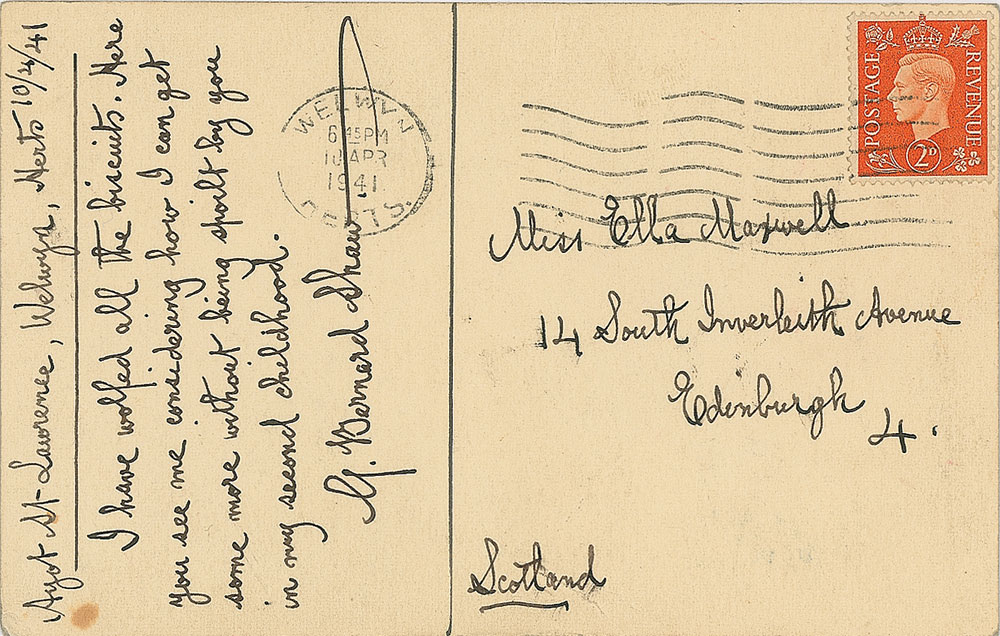 Ayot St Lawrence, Welwyn, Herts 10/4/41
I have wolfed all the biscuits. Here
you see me considering how I can get
some more without being spoilt by you
in my second childhood.
G. Bernard Shaw
WELWYN
6 45 PM
10 APR
1941
HERTS.
POSTAGE
REVENUE
2D
Miss Ella Maxwell
14 South Inverleith Avenue
Edinburgh
4.
Scotland